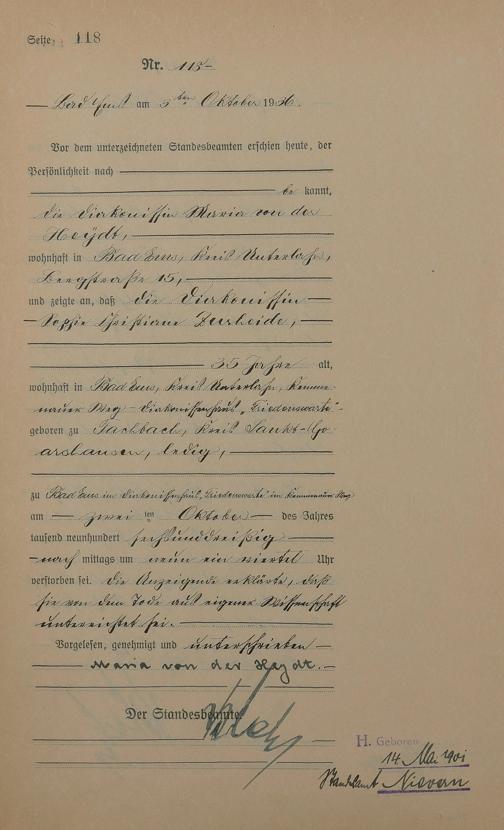 Seite 118
Nr. 115
Bad Ems am 5ten Oktober 1936.
Vor dem unterzeichneten Standesbeamten erschien heute, der
Persönlichkeit nach
be kannt,
die Diakonissin Maria von der
Heydt,
wohnhaft in Bad Ems, Kreis Unterlahn,
Bergstraße 15,
und zeigte an, daß die Diakonissin
Sophie Christiane
35 Jahre alt,
wohnhaft in Bad Ems, Kreis Unterlahn, Kemme-
nauer Weg - Diakonissenhaus „Friedenswarte"-
geboren zu Fachbach, Kreis Sankt-Go
arshausen, ledig,
zu Bad Ems im Diakonissenhaus „Friedenswarte" im Kemmenauer Weg
am zwei ten Oktober des Jahres
tausend neunhundert sechsunddreißig
nach mittags um neun ein viertel Uhr
verstorben sei. Die Anzeigende erklärte, daß
sie von dem Tode aus eigener Wissenschaft
unterrichtet sei.
Vorgelesen, genehmigt und unterschrieben
Maria von der Heydt.
Der Standesbeamte.
H. Geboren
14. Mai 1901
Standesamt Nievern